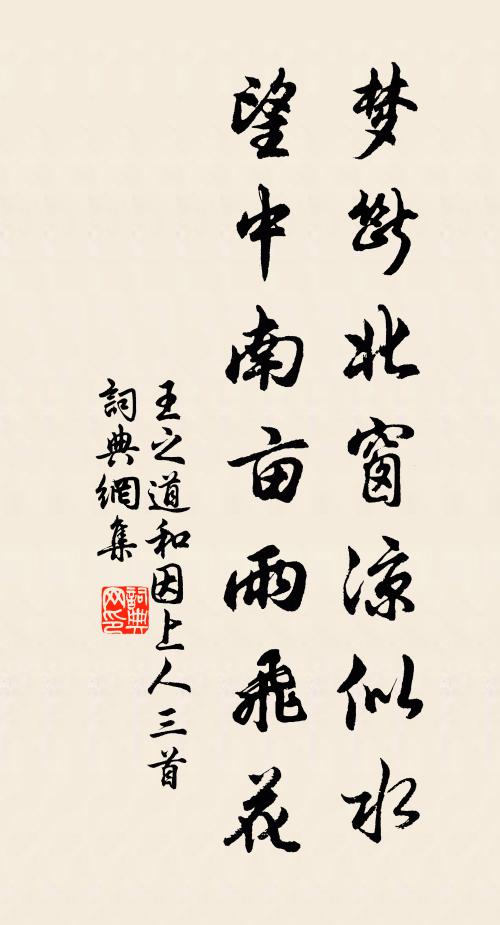 梦断北窗凉似水
望中南亩雨飞花
王之道和因上人三首
詞典網集
詞典网印